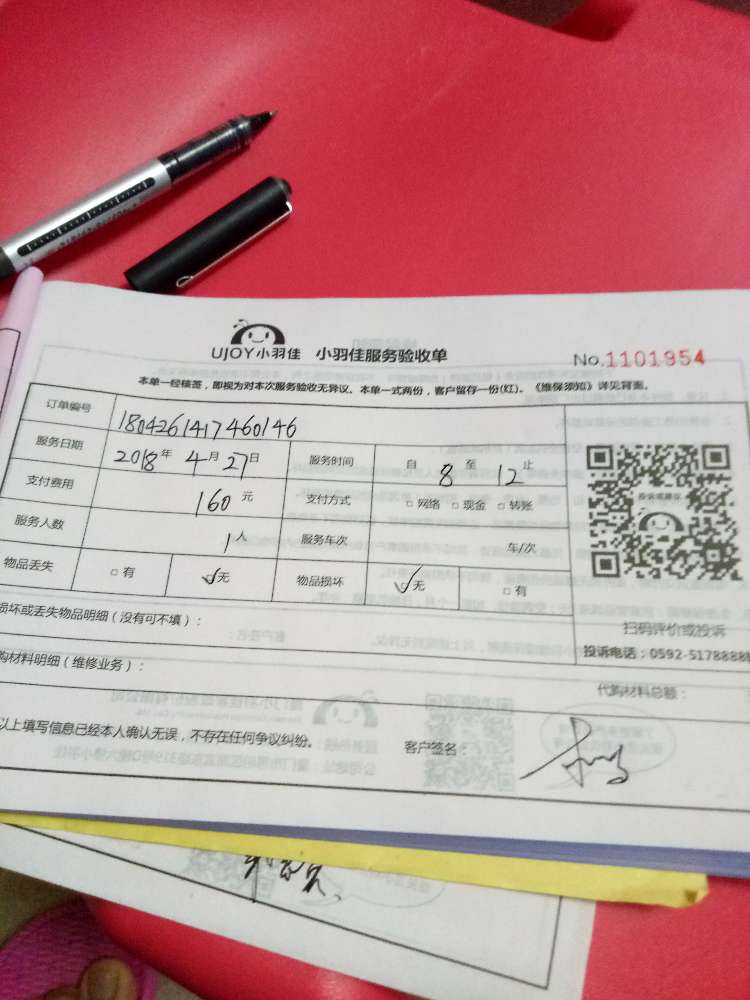 UJOY小羽佳 小羽佳服务验收单 No.1101954
本单一经核签，即视为对本次服务验收无异议、本单一式两份，客户留存一份(红)。《维保须知》详见背面。
订单编号 1804261417460146
服务日期 2018年 4月27日 服务时间 自 8 至 12 止
支付费用 160元 支付方式 □网络 □现金 □转账
服务人数 1人 服务车次 车/次
物品丢失 □有 ☑无 物品损坏 ☑无 □有
损坏或丢失物品明细（没有可不填）：
扫码评价或投诉
投诉电话：0592-5178888
购材料明细（维修业务）：
代购材料总额：
以上填写信息已经本人确认无误，不存在任何争议纠纷。 客户签名：